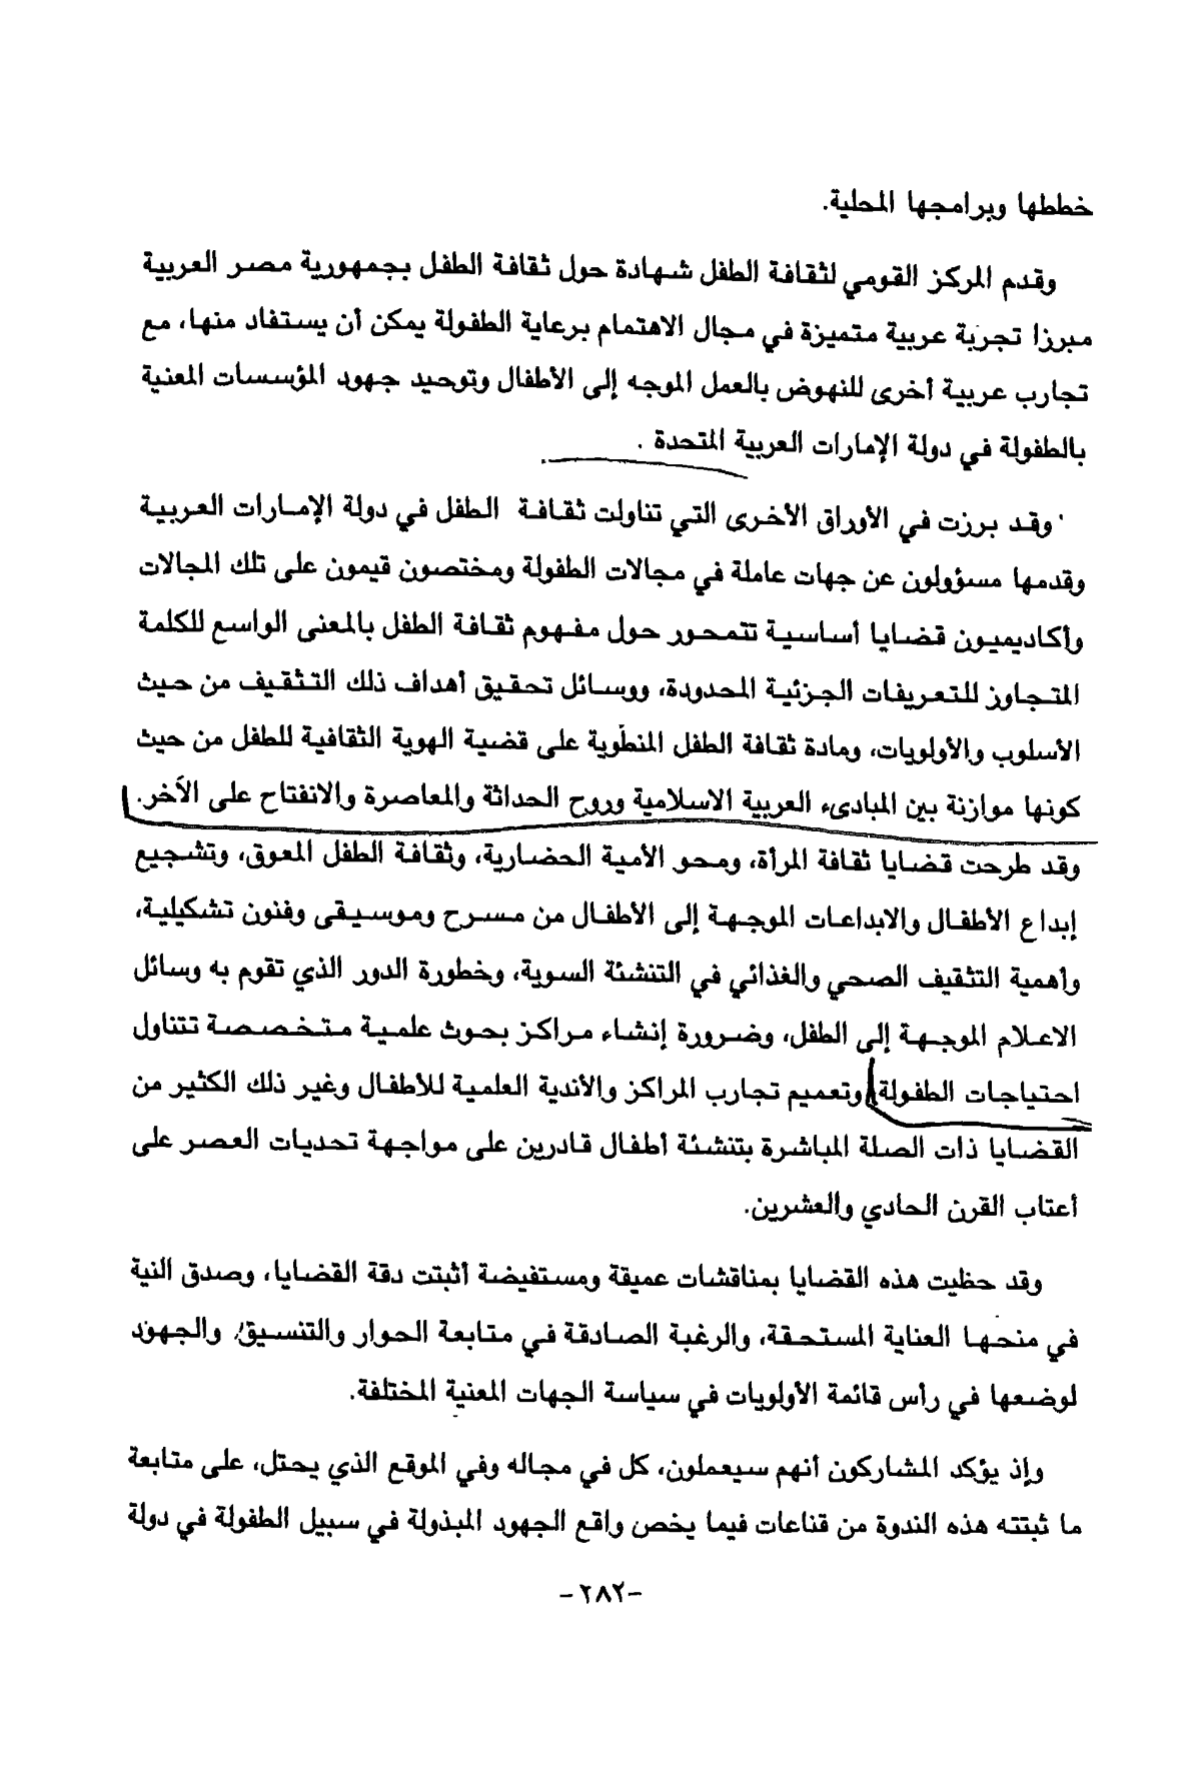 خططها وبرامجها المحلية.
وقدم المركز القومي لثقافة الطفل شهادة حول ثقافة الطفل بجمهورية مصر العربية
مبرزا تجربة عربية متميزة في مجال الاهتمام برعاية الطفولة يمكن أن يستفاد منها، مع
تجارب عربية أخرى للنهوض بالعمل الموجه إلى الأطفال وتوحيد جهود المؤسسات المعنية
بالطفولة في دولة الإمارات العربية المتحدة .
وقد برزت في الأوراق الأخرى التي تناولت ثقافة الطفل في دولة الإمارات العربية
وقدمها مسؤولون عن جهات عاملة في مجالات الطفولة ومختصون قيمون على تلك المجالات
وأكاديميون قضايا أساسية تتمحور حول مفهوم ثقافة الطفل بالمعنى الواسع للكلمة
المتجاوز للتعريفات الجزئية المحدودة، ووسائل تحقيق أهداف ذلك التثقيف من حيث
الأسلوب والأولويات، ومادة ثقافة الطفل المنطوية على قضية الهوية الثقافية للطفل من حيث
كونها موازنة بين المبادىء العربية الاسلامية وروح الحداثة والمعاصرة والانفتاح على الآخر.
وقد طرحت قضايا ثقافة المرأة، ومحو الأمية الحضارية، وثقافة الطفل المعوق، وتشجيع
إبداع الأطفال والابداعات الموجهة إلى الأطفال من مسرح وموسيقى وفنون تشكيلية،
وأهمية التثقيف الصحي والغذائي في التنشئة السوية، وخطورة الدور الذي تقوم به وسائل
الاعلام الموجهة إلى الطفل، وضرورة إنشاء مراكز بحوث علمية متخصصة تتناول
احتياجات الطفولة، وتعميم تجارب المراكز والأندية العلمية للأطفال وغير ذلك الكثير من
القضايا ذات الصلة المباشرة بتنشئة أطفال قادرين على مواجهة تحديات العصر على
أعتاب القرن الحادي والعشرين.
وقد حظيت هذه القضايا بمناقشات عميقة ومستفيضة أثبتت دقة القضايا، وصدق النية
في منحها العناية المستحقة، والرغبة الصادقة في متابعة الحوار والتنسيق، والجهود
لوضعها في رأس قائمة الأولويات في سياسة الجهات المعنية المختلفة.
وإذ يؤكد المشاركون أنهم سيعملون، كل في مجاله وفي الموقع الذي يحتل، على متابعة
ما ثبتته هذه الندوة من قناعات فيما يخص واقع الجهود المبذولة في سبيل الطفولة في دولة
-٢٨٢-